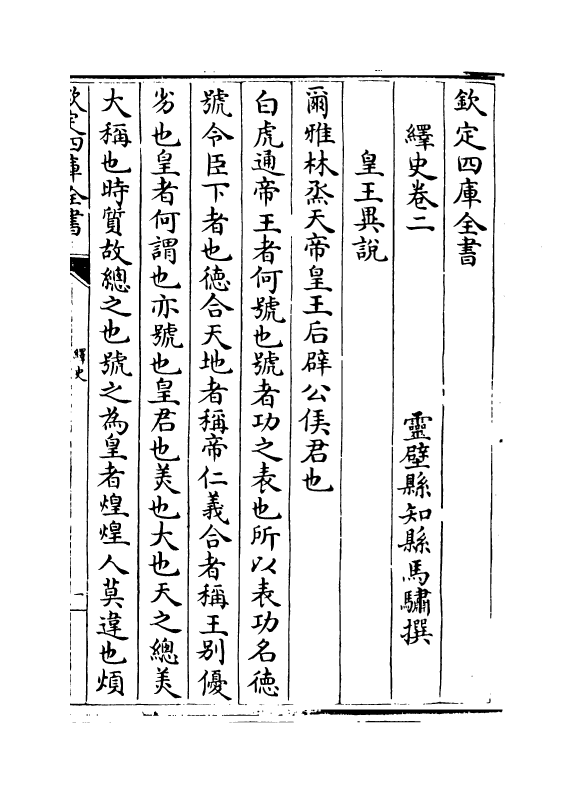 欽定四庫全書
繹史卷二
靈壁縣知縣馬驌撰
皇王異說
爾雅林烝天帝皇王后辟公侯君也
白虎通帝王者何號也號者功之表也所以表功名德
號令臣下者也德合天地者稱帝仁義合者稱王別優
劣也皇者何謂也亦號也皇君也美也大也天之總美
大稱也時質故總之也號之為皇者煌煌人莫違也煩
欽定四庫全書
繹史
一